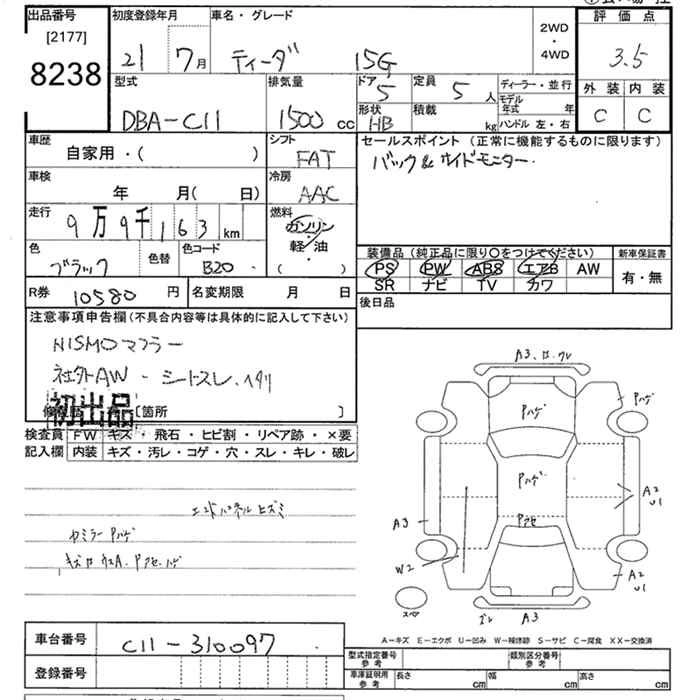 出品番号
[2177]
8238
初度登録年月
21 7月
車名・グレード
ティーダ 15G
2WD
・
4WD
評価点
3.5
外装 内装
C C
型式
DBA-C11
排気量
1500 cc
ドア
5
定員
5 人
ディーラー・並行
モデル
年式 年
形状
HB
積載
kg
ハンドル 左・右
車歴
自家用・( )
シフト
FAT
セールスポイント (正常に機能するものに限ります)
バック& サイドモニター.
車検
年 月( 日)
冷房
AAC
走行
9万9千163 km
燃料
ガソリン
軽・油
( )
色
ブラック
色替
色コード
B20
装備品 (純正品に限り○をつけてください)
PS PW ABS エアB AW
SR ナビ TV カワ
新車保証書
有・無
R券 10580 円
名変期限 月 日
後日品
注意事項申告欄 (不具合内容等は具体的に記入して下さい)
NISMOマフラー
社外AW - シートスレ.ヘタリ
初出品
[箇所 ]
検査員
記入欄
FW キズ・飛石・ヒビ割・リペア跡・×要
内装 キズ・汚レ・コゲ・穴・スレ・キレ・破レ
エンドパネルヒズミ
Pハゲ
A3
Pハゲ
Pハゲ
Pハゲ
Pクセ
A2
U1
A3
W2
A2
U1
スペア
A3
A-キズ E-エクボ U-凹み W-補修跡 S-サビ C-腐食 XX-交換済
車台番号
C11-310097
登録番号
型式指定番号
参考
類別区分番号
参考
車庫証明用
参考
長さ cm
幅 cm
高さ cm